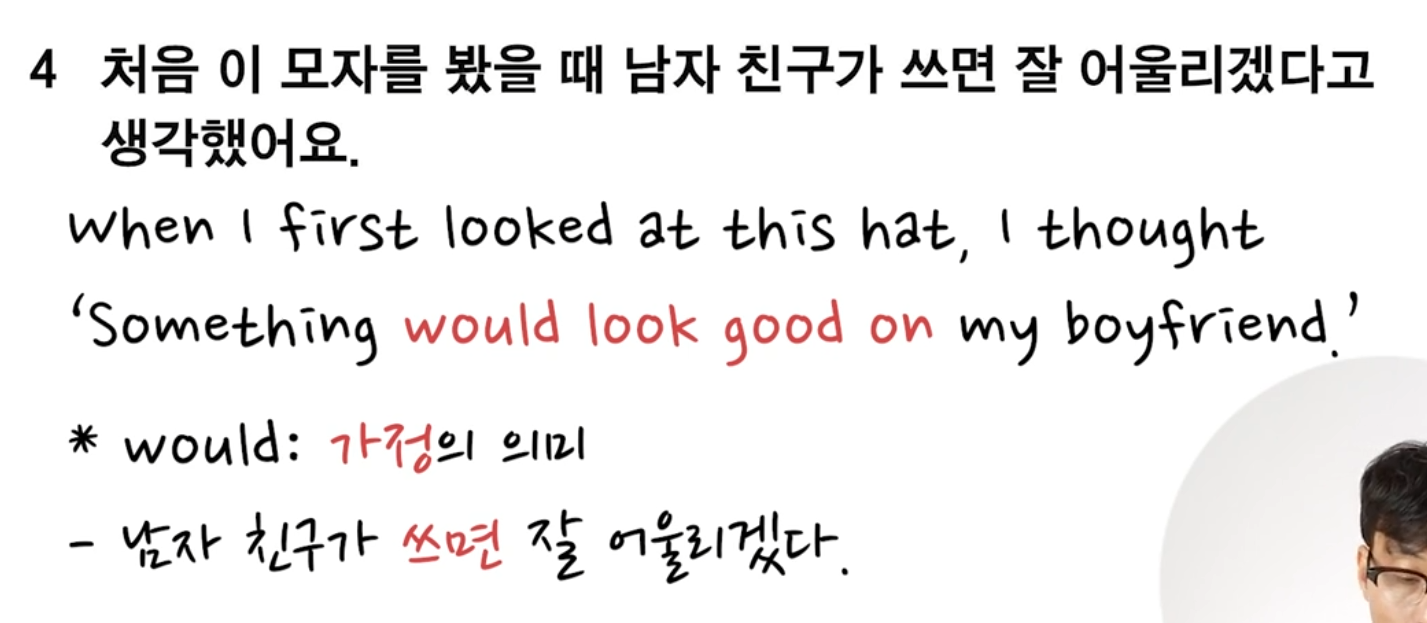 4 처음 이 모자를 봤을 때 남자 친구가 쓰면 잘 어울리겠다고
생각했어요.
When I first looked at this hat, I thought
‘Something would look good on my boyfriend.’
* would: 가정의 의미
- 남자 친구가 쓰면 잘 어울리겠다.